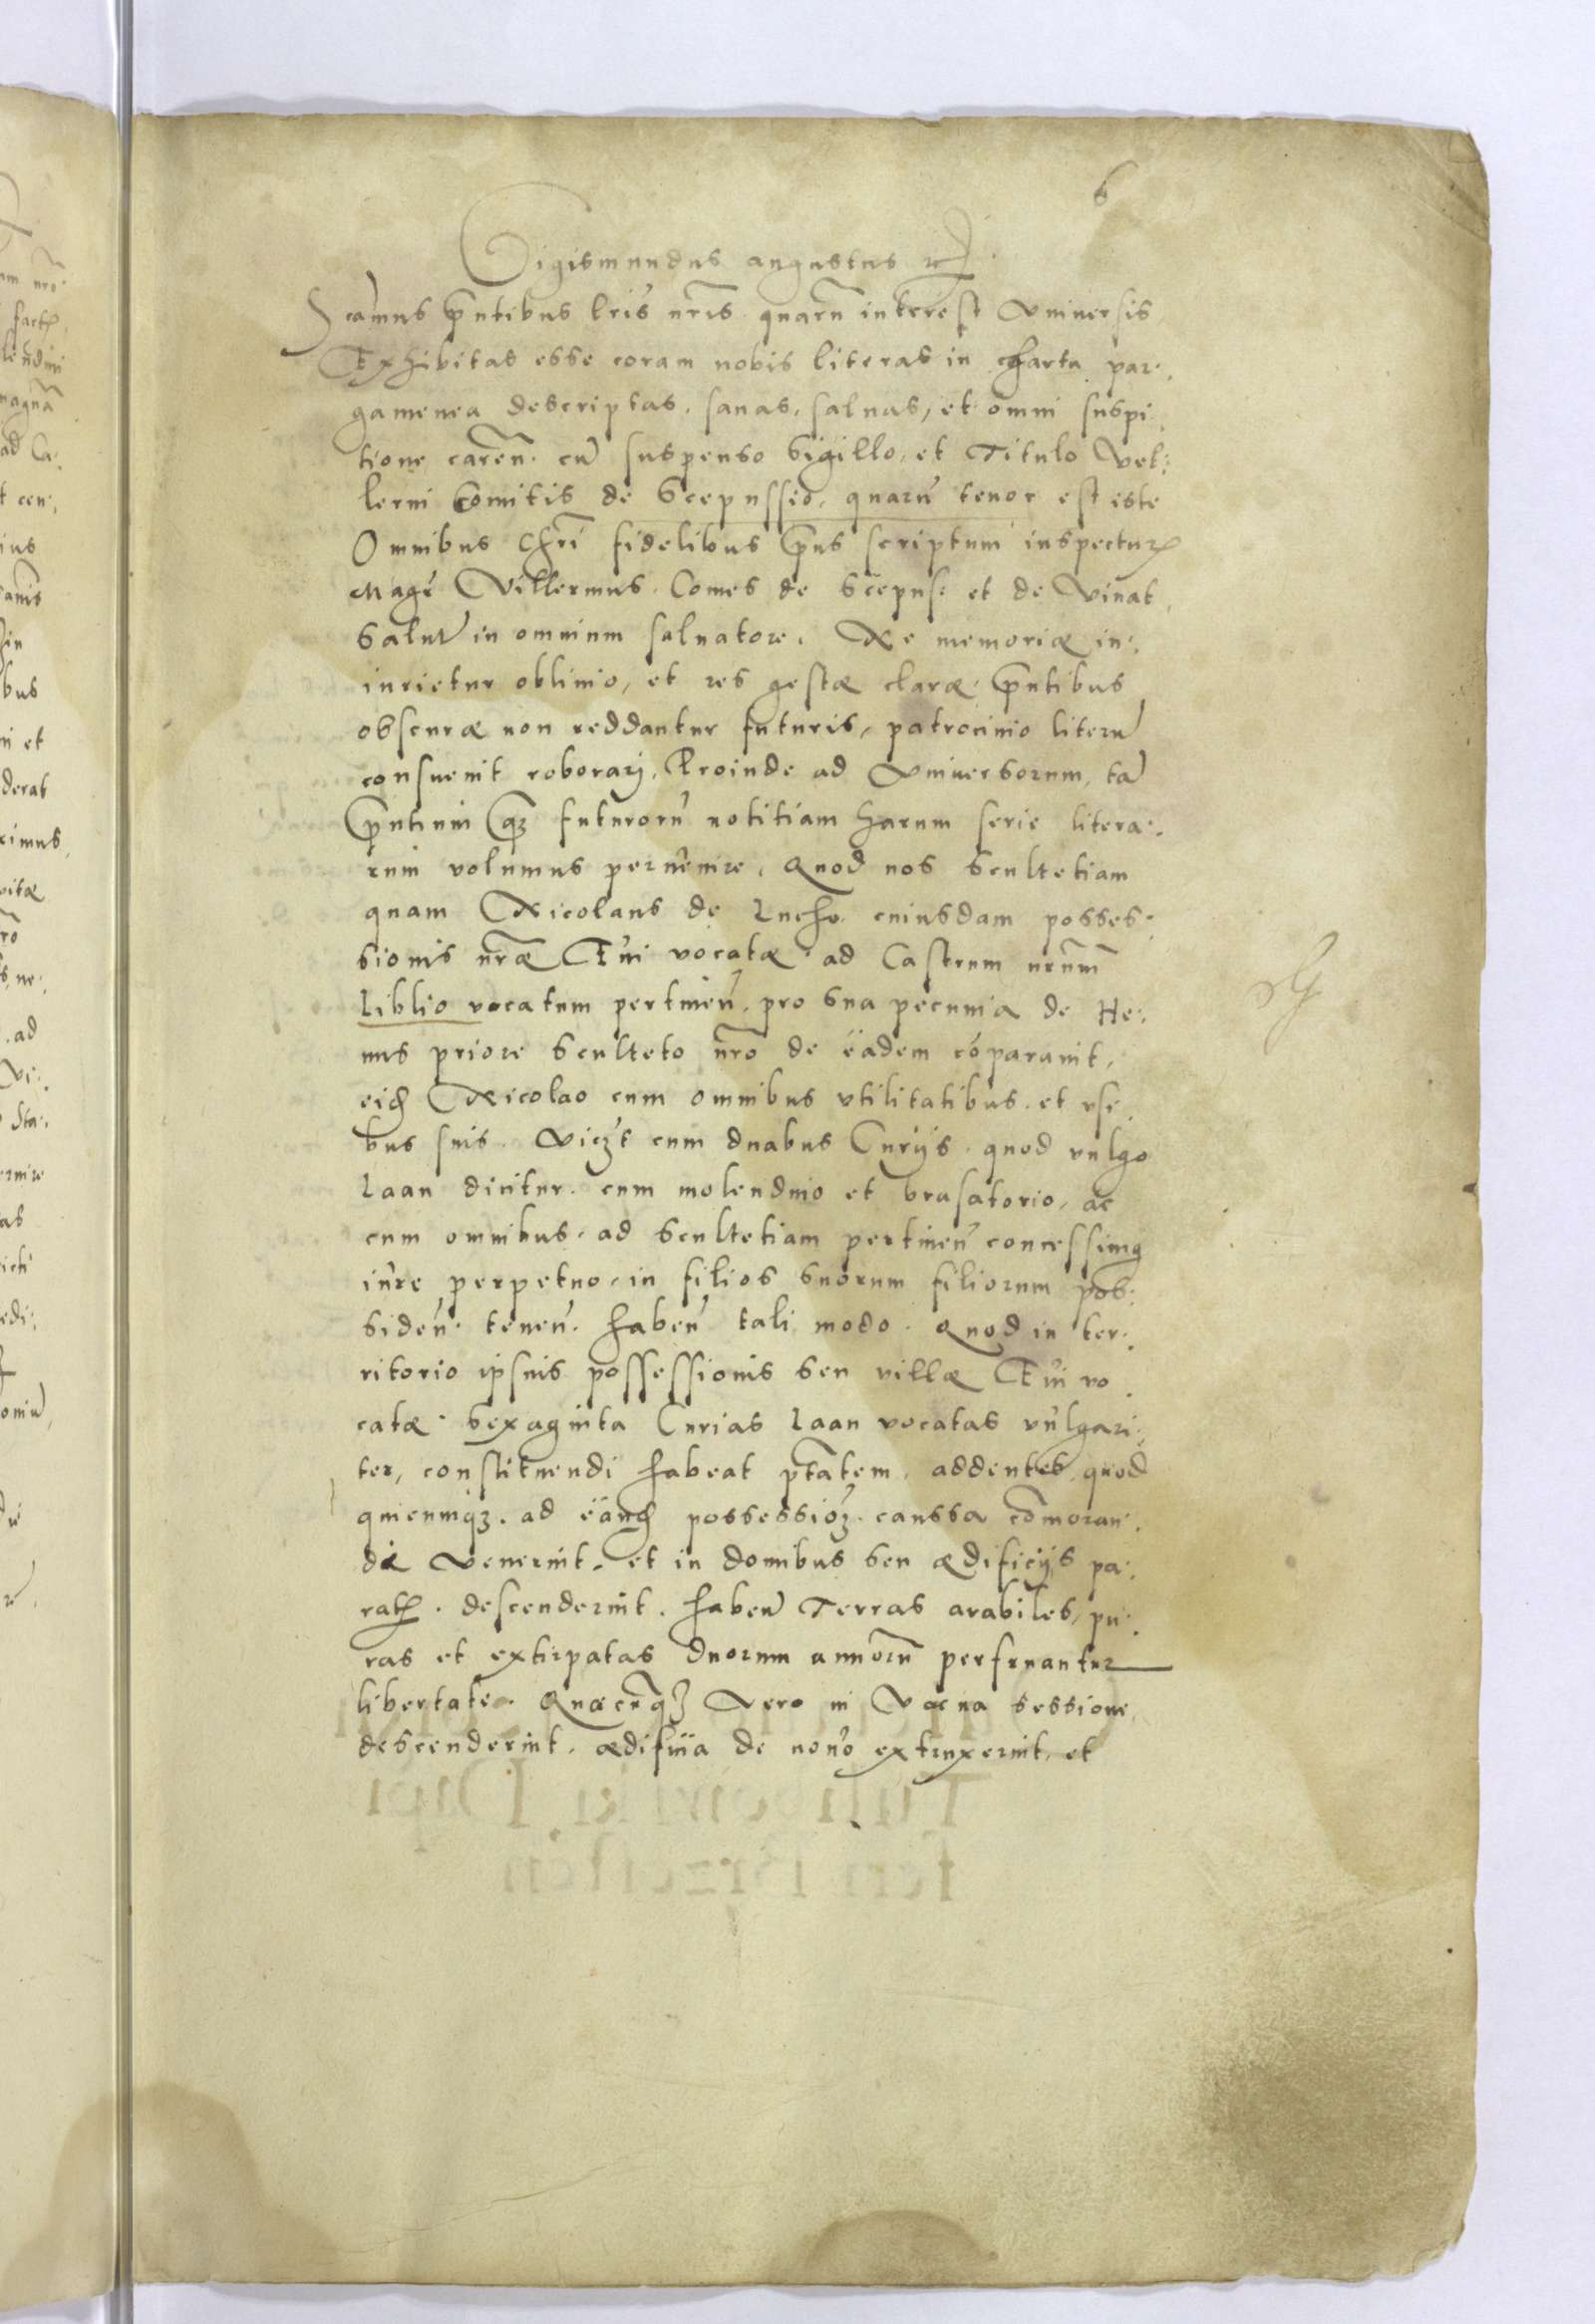 6
Sigismundus augustus etc.
Scamus pñtibus lris nr̃is quarũ interest Vniuersis
Exhibitas esse coram nobis literas in charta par:
gamenea descriptas, sanas, saluas, et omni suspi:
tione careñ. cũ suspenso Sigillo, et Titulo Vel:
lerni Comitis de Scepussio, quarũ tenor est iste
Omnibus Chri fidelibus pñs scriptum inspecturis
Magr̃ Villermus Comes de Scepus: et de Viuat
Salutẽ in omnium saluatore. Ne memoriæ in:
iurietur obliuio, et res gestæ claræ pñtibus
obscuræ non reddantur futuris, patrocinio literũ
consueuit roborarj. Proinde ad Vniuersorum, tã
pñtium qz futurorũ notitiam harum serie litera:
rum volumus peruenire. Quod nos Scultetiam
quam Nicolaus de Lucho cuiusdam posses:
sionis nr̃æ Tũi vocatæ ad Castrum nr̃um
Liblio vocatum pertineñ, pro sua pecunia de He:
nus priore Sculteto nr̃o de eadem cõparauit,
eid Nicolao cum omnibus vtilitatibus et vsi
bus suis. Viczt cum duabus Curijs quod vulgo
Laan dicitur. cum molendino et brasatorio, ac
cum omnibus ad Scultetiam pertineñ concessimq
iure perpetuo, in filios suorum filiorum pos:
sideñ. teneñ. habeñ tali modo. Quod in ter:
ritorio ipsius possessionis seu villæ Tũi vo
catæ sexaginta Curias Laan vocatas vulgari:
ter, constituendi habeat ptãtem, addentes, quod
quicumqz. ad eand possessioz. caussa cõmoran:
di Venerint. et in domibus seu ædificijs pa:
ratis. descenderint. habeñ Terras arabiles, pu:
ras et extirpatas duorum annorũ perfruantur
libertate. Quicũqz Vero in Vacua sessione
descenderint, ædificia de nouo extruxerint, et